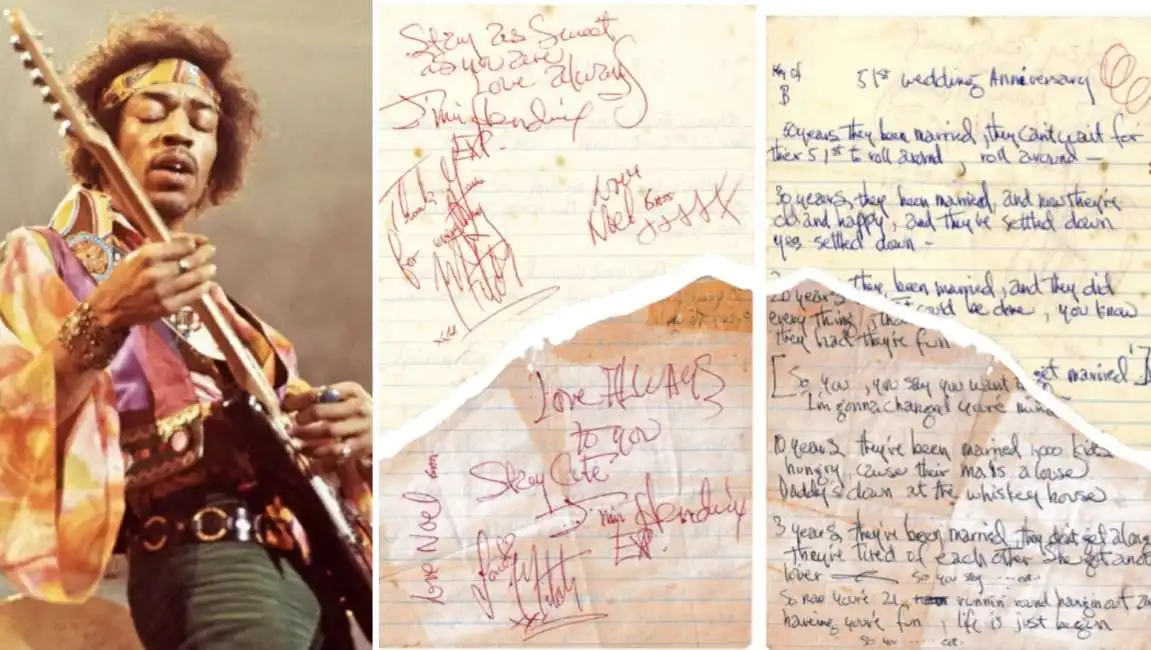 Stay as Sweet
as you are
Love always
Jimi Hendrix
EXP.
Thanks
for everything
Mitch
Love
Noel
xxxx
Love ALWAYS
to you
Stay Cute
Jimi Hendrix
EXP.
Love Noel
Love
Mitch
Key of
B
51st wedding Anniversary
50 years they been married, they cant wait for
thier 51st to roll around, roll around —
30 years, they been married, and now they're
old and happy, and they've settled down
yes settled down –
20 years they been married, and they did
every thing, that could be done, you know
they had they're fun
[So you, you say you want to get married]
I'm gonna changed you're mind
10 years they've been married 1,000 kids
hungry, cause their ma's a louse
Daddy's down at the whiskey house
3 years, they've been married, they dont get along
they're tired of each other She got anot
lover — So you say .... etc.
So now you're 21, runnin round hangin out a
haveing you're fun, life is just begun
so you .... etc.